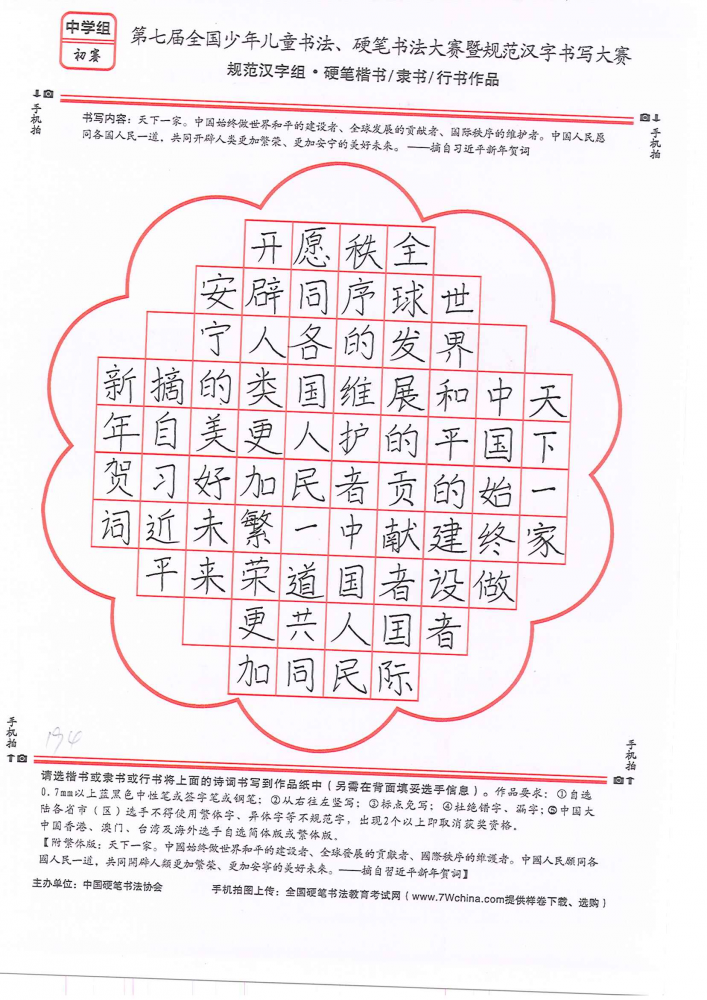 中学组
初赛
第七届全国少年儿童书法、硬笔书法大赛暨规范汉字书写大赛
规范汉字组·硬笔楷书/隶书/行书作品
手机拍
手机拍
书写内容：天下一家。中国始终做世界和平的建设者、全球发展的贡献者、国际秩序的维护者。中国人民愿
同各国人民一道，共同开辟人类更加繁荣、更加安宁的美好未来。——摘自习近平新年贺词
天下一家
中国始终做
世界和平的建设者
全球发展的贡献者国际
秩序的维护者中国人民
愿同各国人民一道共同
开辟人类更加繁荣更加
安宁的美好未来
摘自习近平
新年贺词
手机拍
手机拍
请选楷书或隶书或行书将上面的诗词书写到作品纸中（另需在背面填妥选手信息）。作品要求：①自选
0.7mm以上蓝黑色中性笔或签字笔或钢笔；②从右往左竖写；③标点免写；④杜绝错字、漏字；⑤中国大
陆各省市（区）选手不得使用繁体字、异体字等不规范字，出现2个以上即取消获奖资格。
中国香港、澳门、台湾及海外选手自选简体版或繁体版。
【附繁体版：天下一家。中國始終做世界和平的建設者、全球發展的貢獻者、國際秩序的維護者。中國人民願同各
國人民一道，共同開辟人類更加繁荣、更加安寧的美好未來。——摘自習近平新年賀詞】
主办单位：中国硬笔书法协会
手机拍图上传：全国硬笔书法教育考试网（www.7Wchina.com提供样卷下载、选购）